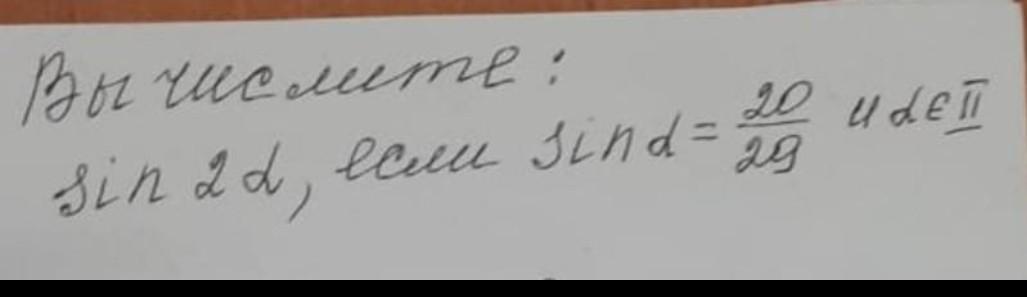 Вычислите:
sin 2α, если sin α = 20/29 и α ∈ II